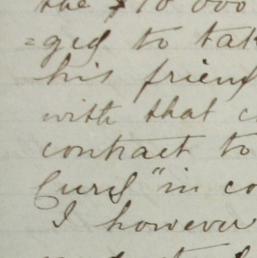 the $10 000
=ged to tak
his friend
with that c
contract to
Curd "in co
I however